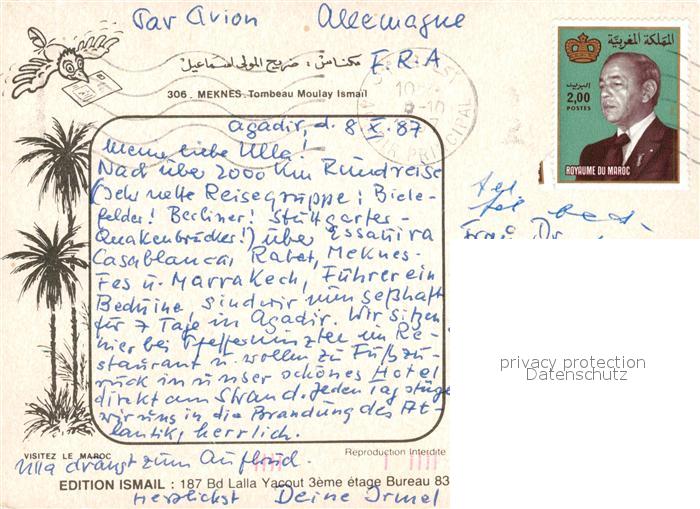 Par Avion Allemagne
F.R.A
مكناس : ضريح المولى اسماعيل
306. MEKNES. Tombeau Moulay Ismaïl
المملكة المغربية
البريد
2,00
POSTES
ROYAUME DU MAROC
PRINCIPAL
Agadir, d. 8 X. 87
Meine liebe Ulla!
Nach über 2000 km Rundreise
(Sehr nette Reisegruppe: Biele-
felder! Berliner! Stuttgarter-
Quakenbrücker!) über Essauira
Casablanca, Rabat, Meknes-
Fes u. Marrakech, Führer ein
Beduine, sind wir nun seßhaft
für 7 Tage in Agadir. Wir sitzen
hier bei Pfefferminztee im Re-
staurant u. wollen zu Fuß zu-
rück in unser schönes Hotel
direkt am Strand. Jeden Tag stürzen
wir uns in die Brandung des At-
lantik, herrlich.
Ulla drängt zum Aufbruch.
Herzlichst Deine Irmel
Frau Dr.
privacy protection
Datenschutz
VISITEZ LE MAROC
Reproduction Interdite
EDITION ISMAIL : 187 Bd Lalla Yacout 3ème étage Bureau 83